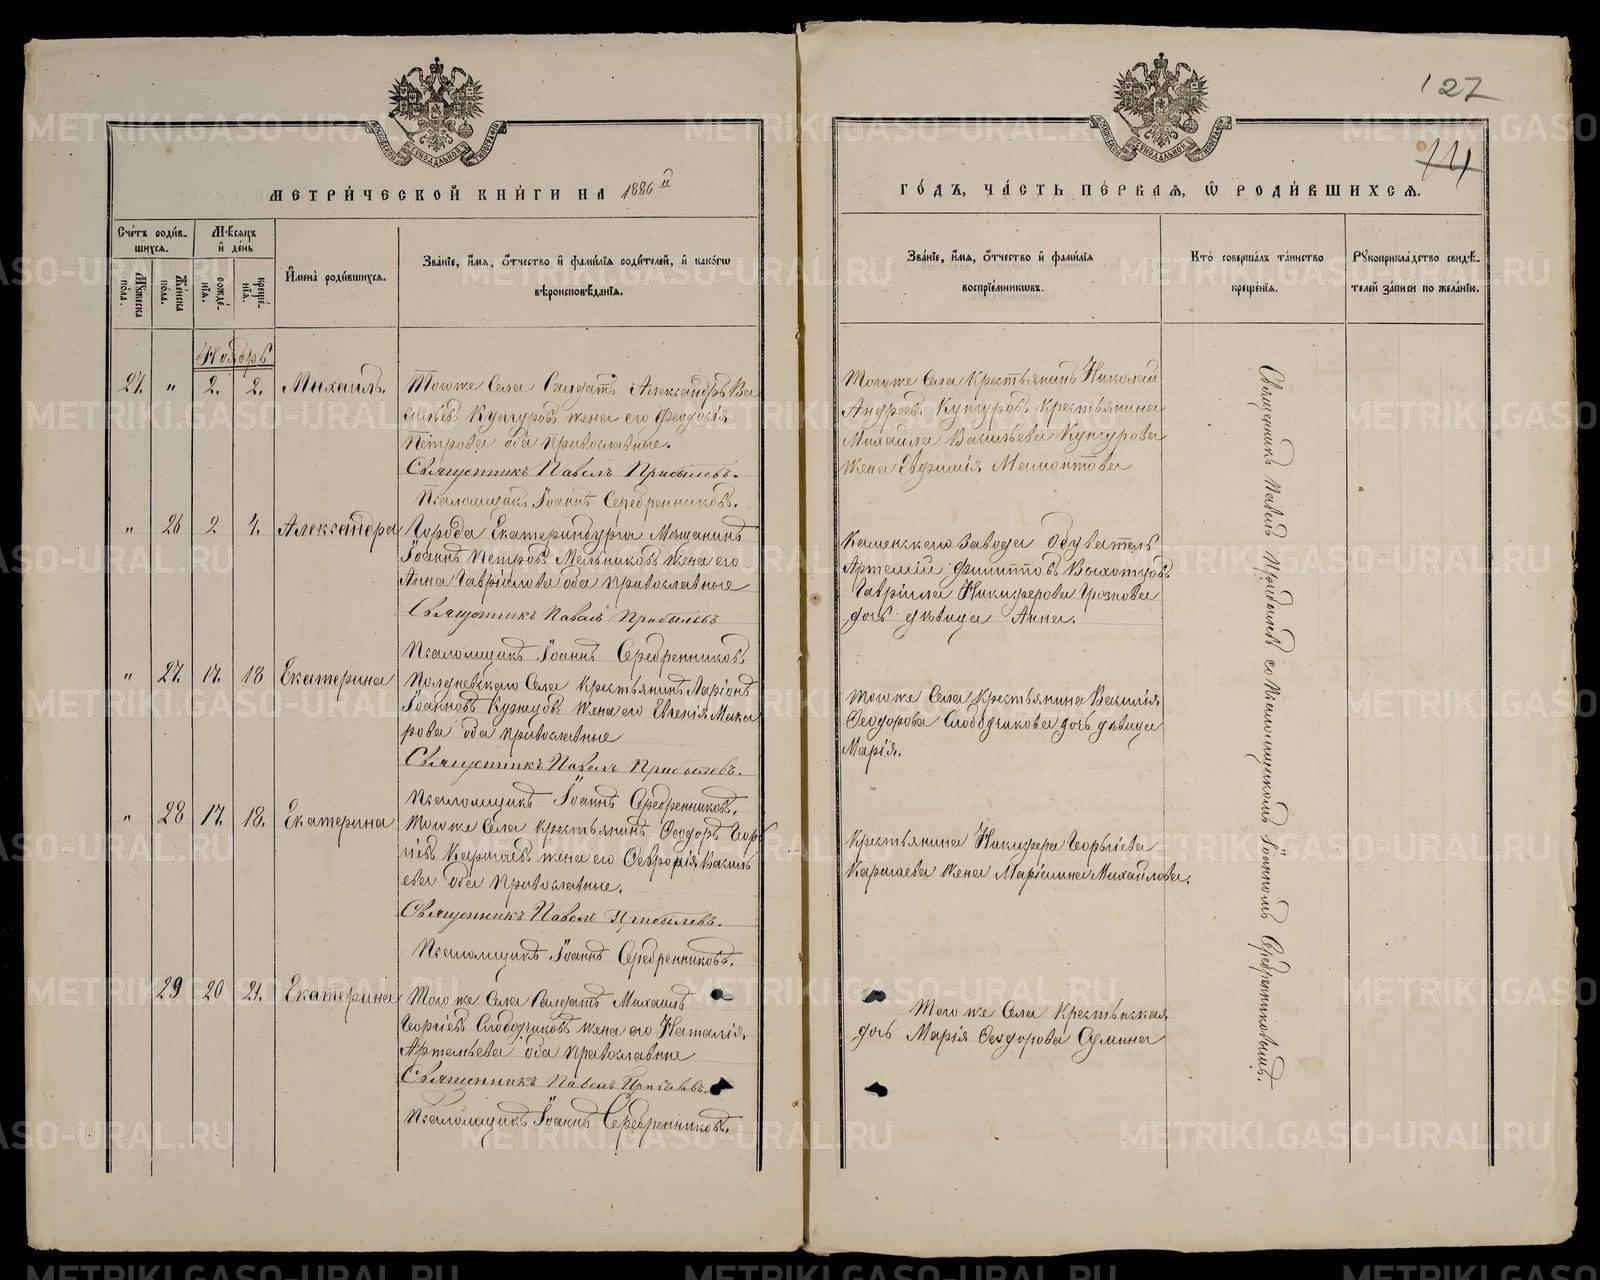 127
14
МЕТРИ́ЧЕСКОЙ КНИ́ГИ НА 1886й
ГО́ДЪ, ЧА́СТЬ ПЕ́РВАЯ, Ѿ РОДИ́ВШИХСЯ.
Сче́тъ роди́вшихся.
Мѣ́сяцъ и де́нь
Мꙋжеска по́ла.
Же́нска по́ла.
рожде́нїя.
креще́нїя.
И҆мена̀ роди́вшихся.
Зва́нїе, и҆́мя, ѻ҆́тчество и҆ фами́лїя роди́телей, и҆ како́гѡ
вѣроисповѣ́данїя.
Зва́нїе, и҆́мя, ѻ҆́тчество и҆ фами́лїя
воспрїе́мникѡвъ.
Кто̀ соверша́лъ та́инство
креще́нїя.
Рꙋкоприкла́дство свидѣ́-
телей за́писи по жела́нїю.
Ноябрь
27. " 2. 2. Михаилъ.
Того же Села Солдатъ Александръ Ва
сильевъ Кунгуровъ жена его Феодосія
Петрова оба Православные.
Священникъ Павелъ Прибылевъ.
Псаломщикъ Іоаннъ Серебренниковъ.
Того же Села Крестьянинъ Николай
Андреевъ Кунгуровъ крестьянина
Михаила Васильева Кунгурова
жена Евфимія Мамонтова
" 26 2 4. Александра
Города Екатеринбурга Мѣщанинъ
Іоаннъ Петровъ Мельниковъ жена его
Анна Гавріилова оба православные
Священникъ Павелъ Прибылевъ
Псаломщикъ Іоаннъ Серебренниковъ
Каменскаго Завода обыватель
Артемій Филипповъ
Гавріила Никифорова
дочь дѣвица Анна.
" 27. 17. 18 Екатерина
Полдневскаго Села Крестьянинъ Ларіонъ
Іоанновъ Кузнцовъ жена его Евгенія Мака
рова оба православные
Священникъ Павелъ Прибылевъ.
Псаломщикъ Іоаннъ Серебренниковъ.
Того же Села Крестьянина Василія
Ѳеодорова Слободчикова дочь дѣвица
Марія.
" 28 17. 18. Екатерина
Того же Села крестьянинъ Ѳеодоръ Геор
гіевъ Каргаевъ жена его Ѳевронія Василь
ева оба Православные.
Священникъ Павелъ Прибылевъ.
Псаломщикъ Іоаннъ Серебренниковъ.
Крестьянина Никифора Георгіева
Каргаева жена Маріамна Михайлова.
29 20 21. Екатерина
Того же Села Солдатъ Михаилъ
Георгіевъ Слободчиковъ жена его Наталія
Артемьева оба православные
Священникъ Павелъ Прибылевъ.
Псаломщикъ Іоаннъ Серебренниковъ.
Того же Села Крестьянская
дочь Марія Ѳеодорова
Священникъ Павелъ Прибылевъ съ Псаломщикомъ Іоанномъ Серебренниковымъ.